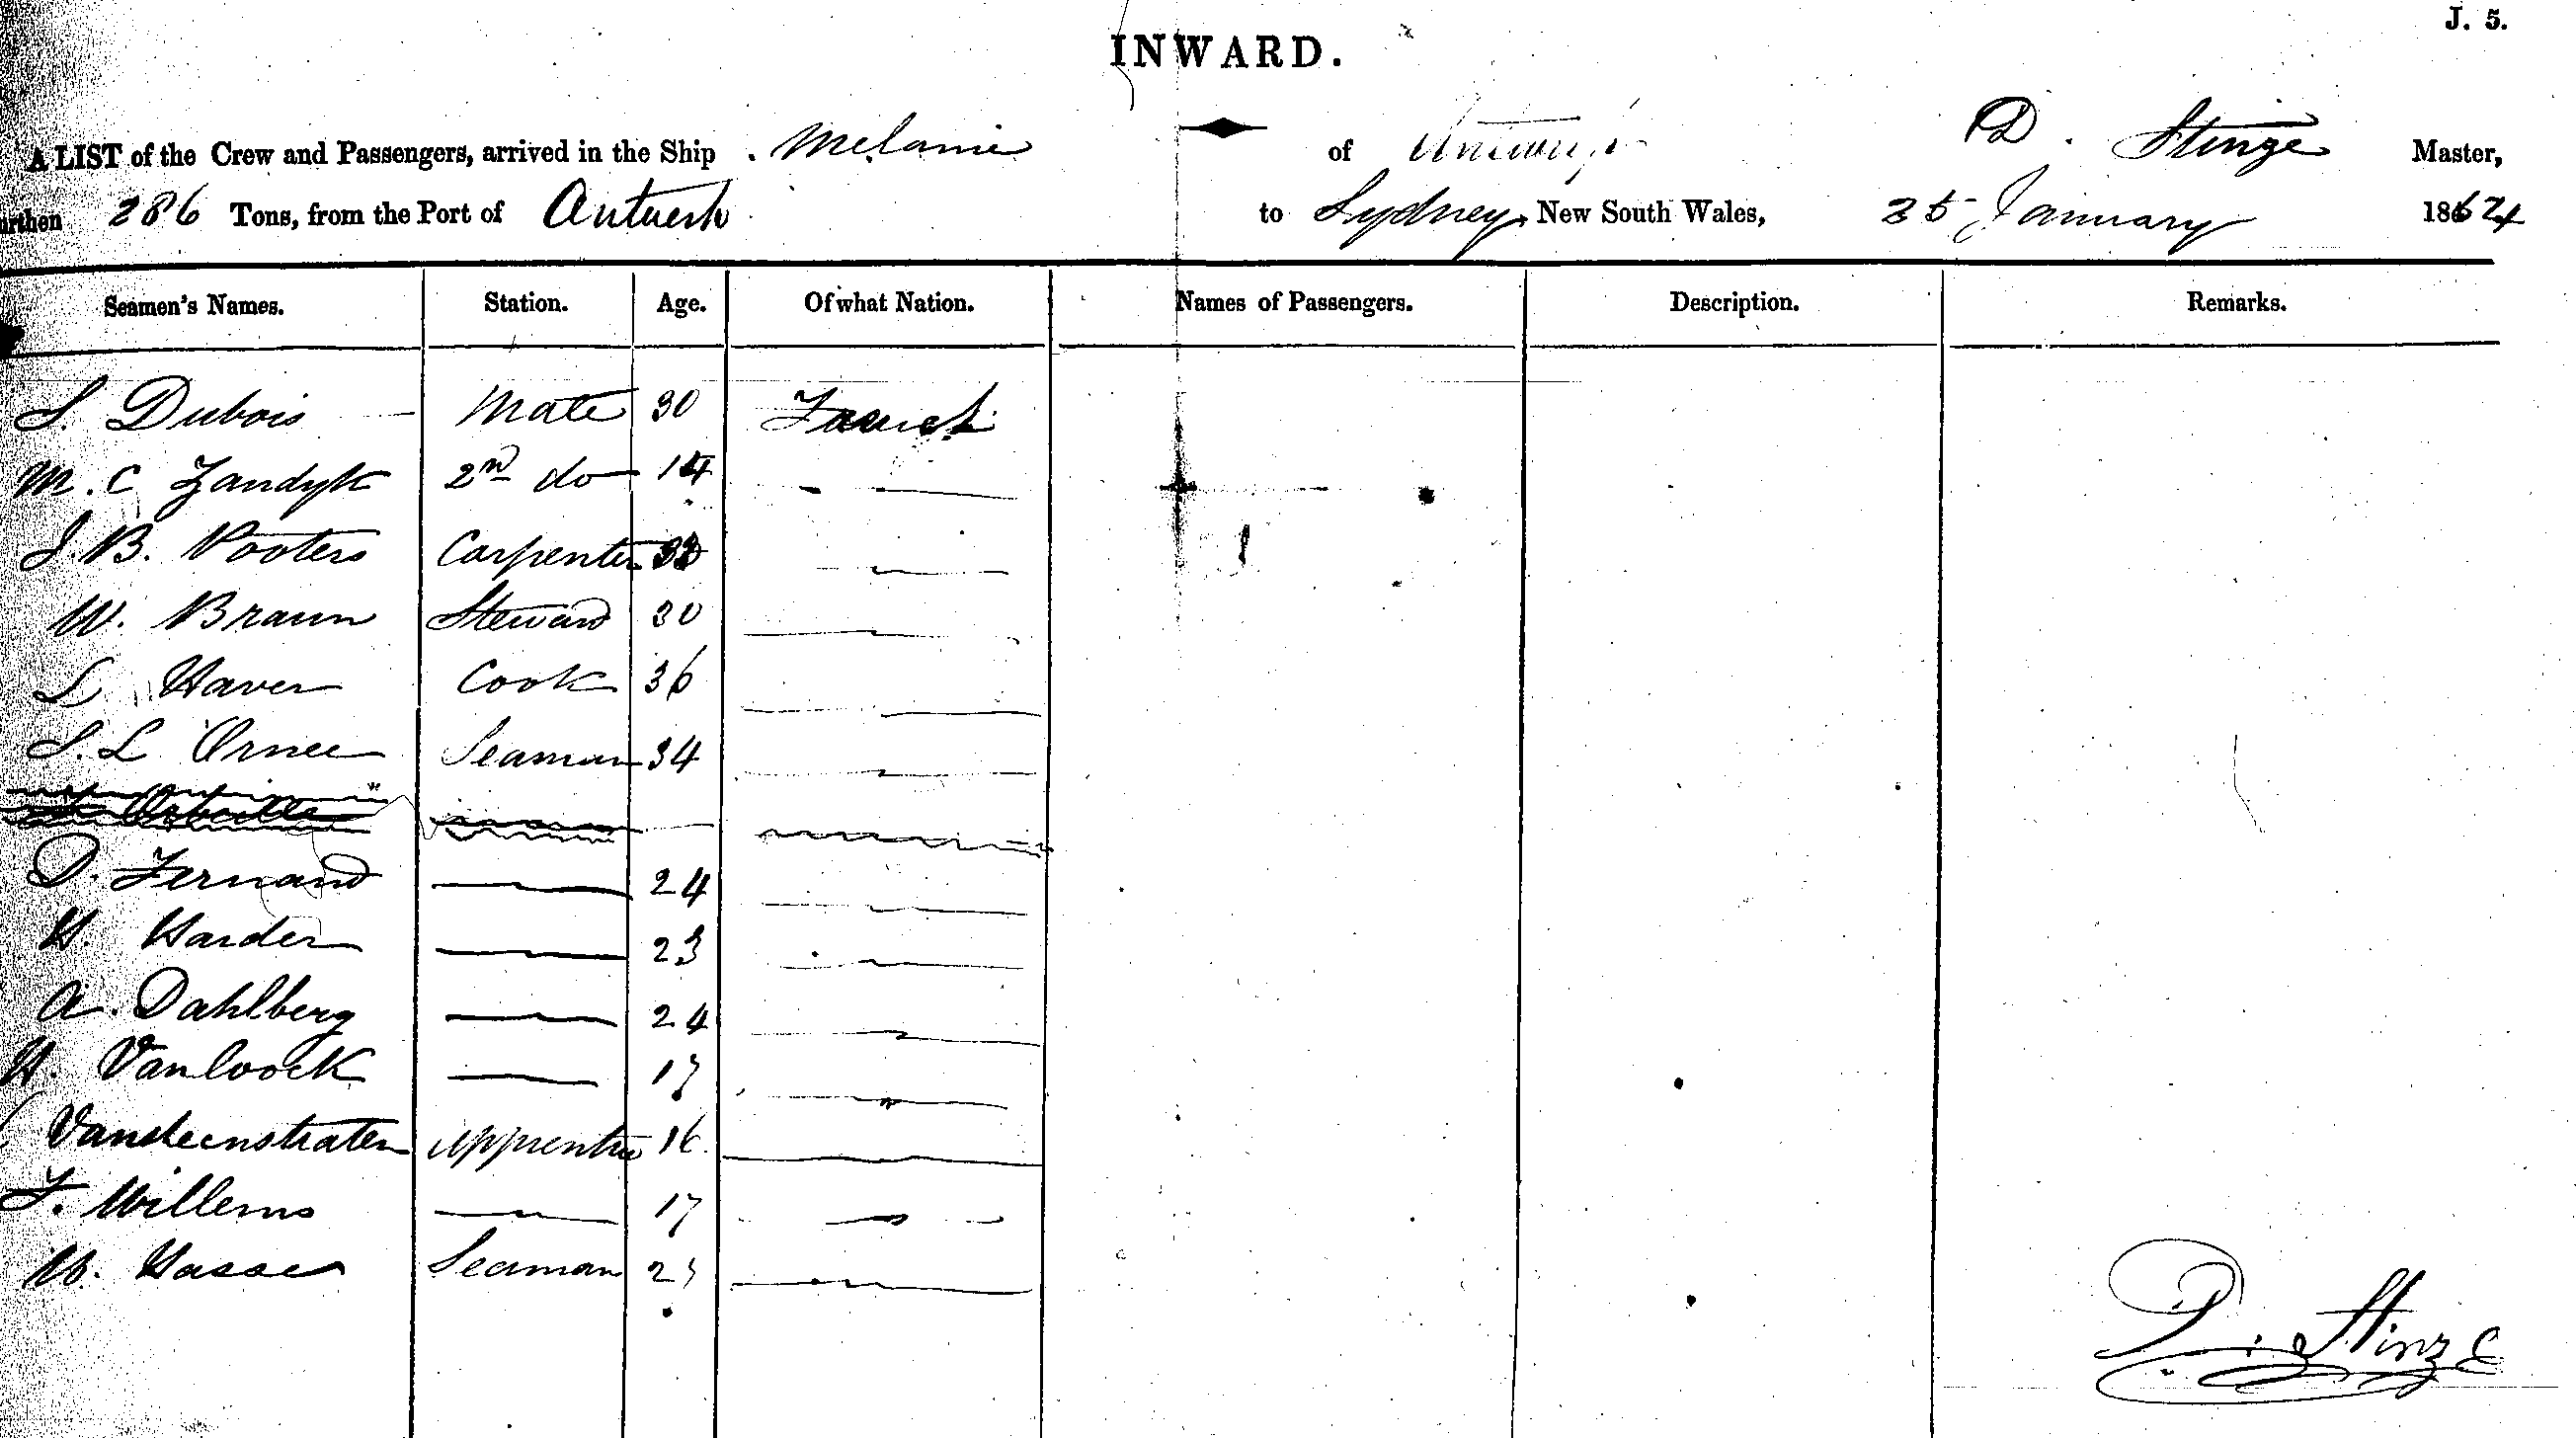 J. 5.
INWARD.
A LIST of the Crew and Passengers, arrived in the Ship Melanie of Antwerp D. Stinze Master,
urthen 286 Tons, from the Port of Antwerp to Sydney, New South Wales, 25 January 1864
Seamen's Names. Station. Age. Of what Nation. Names of Passengers. Description. Remarks.
S. Dubois Mate 30 French
M. C Zandyk 2nd do 14
J. B. Pooters Carpenter
W. Braun Steward 30
L Haver Cook 36
S. L Ornee Seaman 34
D. Fernand 24
H. Harder 23
A. Dahlberg 24
H. Vanloock 17
Vansteenstraten Apprentice 16
F. Willems 17
W. Hasse Seaman 25
D. Stinze